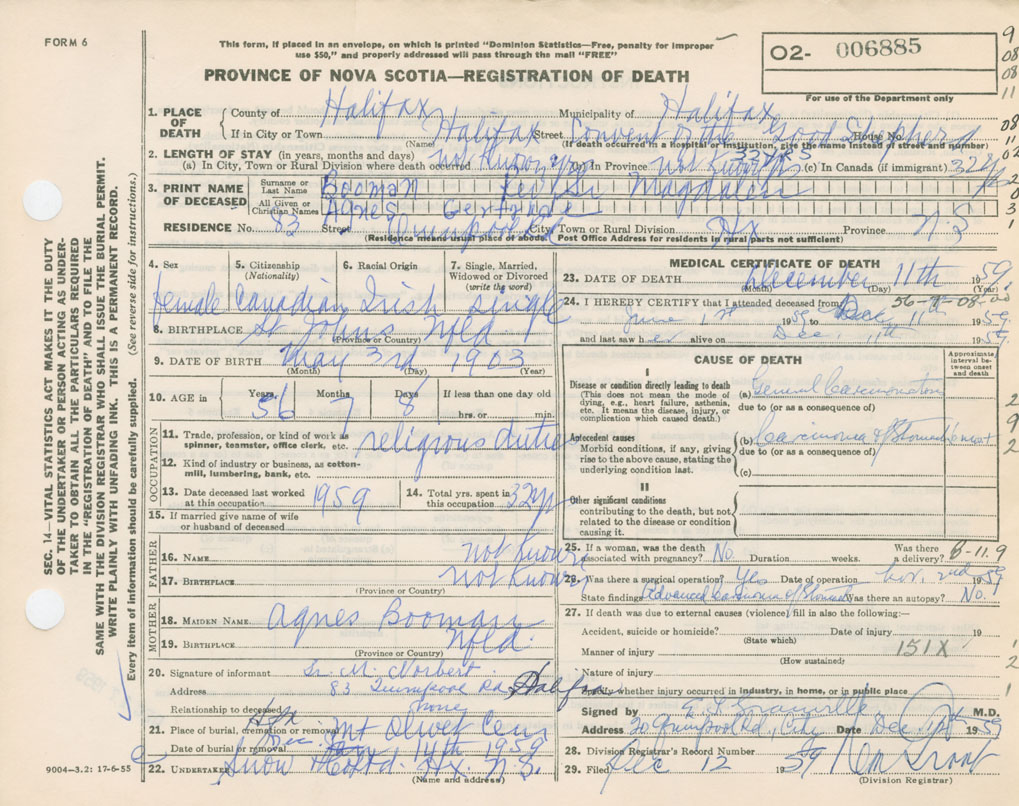 FORM 6
This form, if placed in an envelope, on which is printed "Dominion Statistics—Free, penalty for improper
use $50," and properly addressed will pass through the mail "FREE"
PROVINCE OF NOVA SCOTIA—REGISTRATION OF DEATH
O2- 006885
For use of the Department only
9
08
08
11
08
02
2
0
3
1
SEC. 14—VITAL STATISTICS ACT MAKES IT THE DUTY
OF THE UNDERTAKER OR PERSON ACTING AS UNDER-
TAKER TO OBTAIN ALL THE PARTICULARS REQUIRED
IN THE "REGISTRATION OF DEATH" AND TO FILE THE
SAME WITH THE DIVISION REGISTRAR WHO SHALL ISSUE THE BURIAL PERMIT.
WRITE PLAINLY WITH UNFADING INK. THIS IS A PERMANENT RECORD.
Every item of information should be carefully supplied. (See reverse side for instructions.)
1. PLACE OF DEATH County of Halifax Municipality of Halifax
If in City or Town Halifax Street Convent of the Good Shepherd House No.
(Name) (If death occurred in a hospital or institution, give the name instead of street and number)
2. LENGTH OF STAY (in years, months and days) 32 yrs
(a) In City, Town or Rural Division where death occurred not known (b) In Province not known (c) In Canada (if immigrant) 32 yrs
3. PRINT NAME OF DECEASED Surname or Last Name Booman Sr Magdalen
All Given or Christian Names Agnes Gertrude
RESIDENCE No. 83 Street Quinpool Rd City, Town or Rural Division Hx Province N.S
(Residence means usual place of abode. Post Office Address for residents in rural parts not sufficient)
4. Sex 5. Citizenship (Nationality) 6. Racial Origin 7. Single, Married, Widowed or Divorced (write the word)
female Canadian Irish single
8. BIRTHPLACE St Johns Nfld
(Province or Country)
9. DATE OF BIRTH May 3rd 1903
(Month) (Day) (Year)
10. AGE in Years 56 Months 7 Days 8 If less than one day old
hrs. or min.
OCCUPATION
11. Trade, profession, or kind of work as spinner, teamster, office clerk, etc. religious duties
12. Kind of industry or business, as cotton-mill, lumbering, bank, etc.
13. Date deceased last worked at this occupation 1959 14. Total yrs. spent in this occupation 32 yrs
15. If married give name of wife or husband of deceased
FATHER
16. NAME not known
17. BIRTHPLACE not known
(Province or Country)
MOTHER
18. MAIDEN NAME Agnes Booman
19. BIRTHPLACE Nfld.
(Province or Country)
20. Signature of informant Sr. M. Norbert
Address 83 Quinpool Rd, Halifax
Relationship to deceased none
21. Place of burial, cremation or removal Hfx. Mt Olivet Cem
Date of burial or removal Dec. 14th 1959
22. UNDERTAKER Snow & Co Ltd. Hx. N.S.
(Name and address)
9004—3.2: 17-6-55
MEDICAL CERTIFICATE OF DEATH
23. DATE OF DEATH December 11th 1959
(Month) (Day) (Year)
24. I HEREBY CERTIFY that I attended deceased from 56-7-08-00
June 1st 1959 to Dec 11th 1959
and last saw her alive on Dec. 11th 1959
CAUSE OF DEATH
Approximate interval between onset and death
I
Disease or condition directly leading to death
(This does not mean the mode of dying, e.g., heart failure, asthenia, etc. It means the disease, injury, or complication which caused death.)
(a) General Carcinomatosis
due to (or as a consequence of)
Antecedent causes
Morbid conditions, if any, giving rise to the above cause, stating the underlying condition last.
(b) Carcinoma of Stomach
due to (or as a consequence of)
(c)
II
Other significant conditions
contributing to the death, but not related to the disease or condition causing it.
2
9
2
25. If a woman, was the death associated with pregnancy? No. Duration weeks. Was there a delivery? 6-11.9
26. Was there a surgical operation? Yes Date of operation Nov. 2nd 1959
State findings Advanced Carcinoma of Stomach Was there an autopsy? No.
27. If death was due to external causes (violence) fill in also the following:—
Accident, suicide or homicide? Date of injury 19
(State which)
Manner of injury 151X
(How sustained)
Nature of injury
Specify whether injury occurred in industry, in home, or in public place
1
2
1
Signed by M.D.
Address 20 Quinpool Rd, City Date Dec 12th 1959
28. Division Registrar's Record Number
29. Filed Dec 12 1959
(Division Registrar)